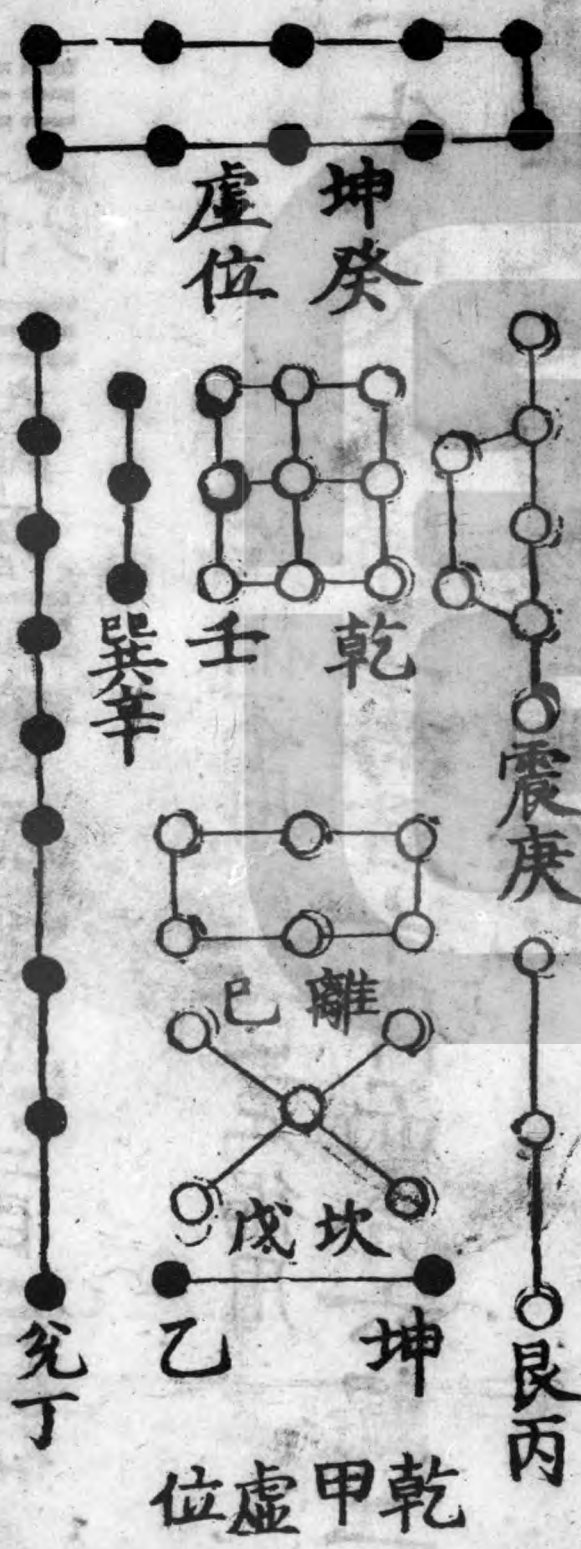 坤癸
虛位
乾壬
巽辛
震庚
離己
坎戊
坤乙
艮丙
兌丁
乾甲虛位